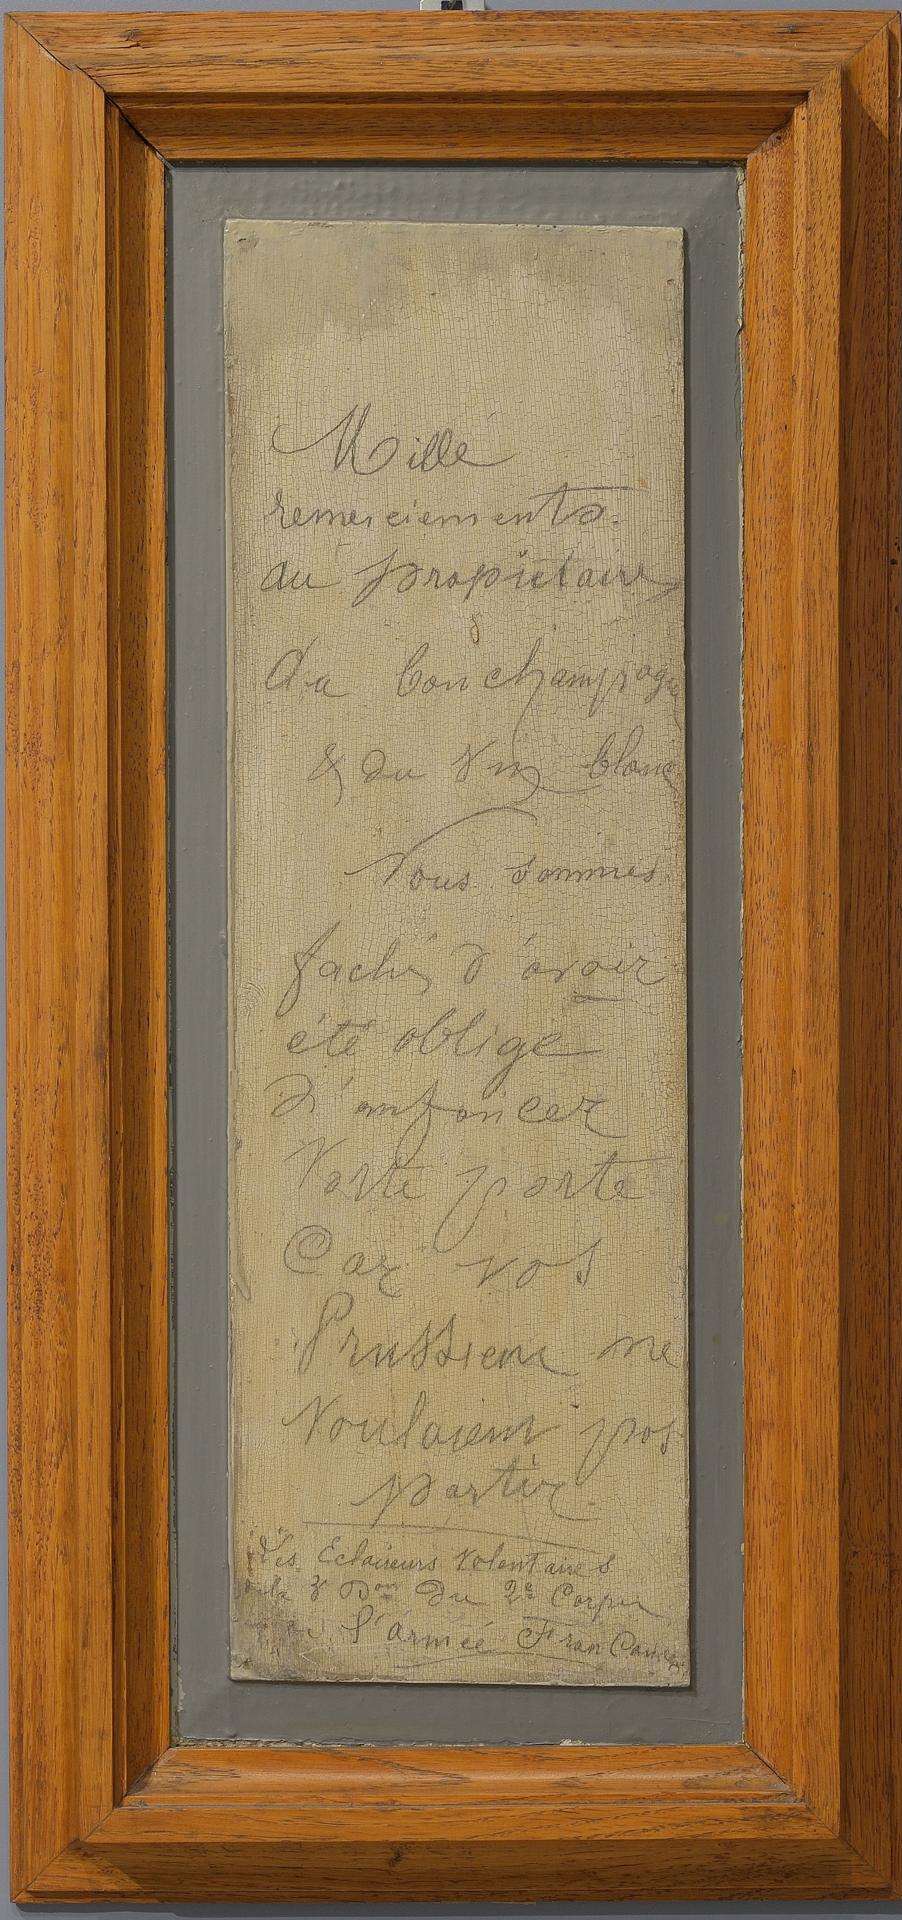 Mille
remerciements
au propiétaire
du bon champagne
& du vin blanc
Nous sommes
fachés d'avoir
été obligé
d'enfoncer
Votre porte
Car vos
Prussiens ne
Voulaient pas
partir.
des Eclaireurs Volontaires
de la 3e Don du 2e Corps
l'armée Francaise